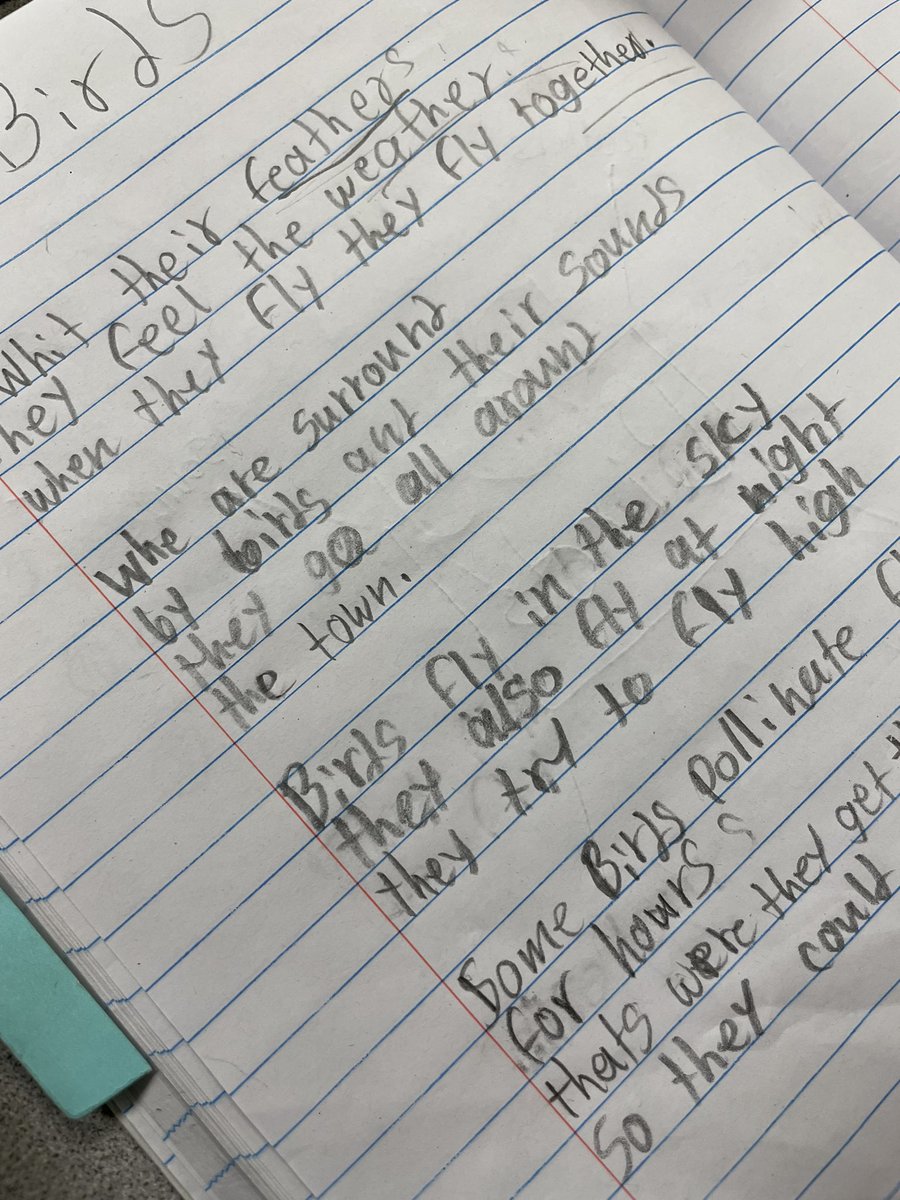 Birds
Whit their feathers
they feel the weather.
when they fly they fly together.
Whe are surround
by birds ant their sounds
they go all around
the town.
Birds fly in the sky
they also fly at night
they try to fly high
Some Birds pollinate
for hours
thats were they get
So they could